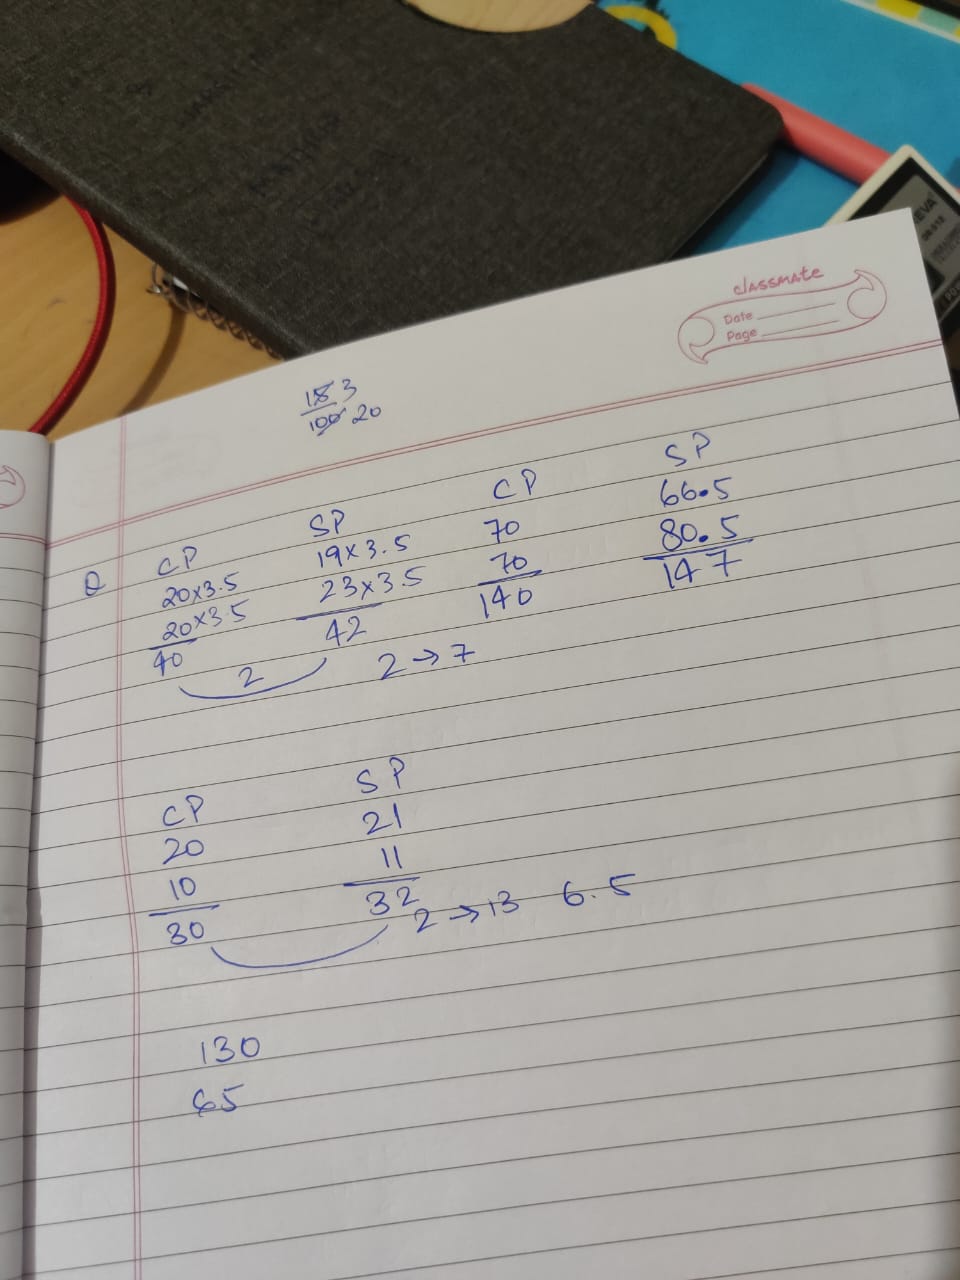 classmate
Date
Page
15 3
100 20
Q CP SP CP SP
20×3.5 19×3.5 70 66.5
20×3.5 23×3.5 70 80.5
40 42 140 147
2 2→7
CP SP
20 21
10 11
30 32 2→13 6.5
130
65